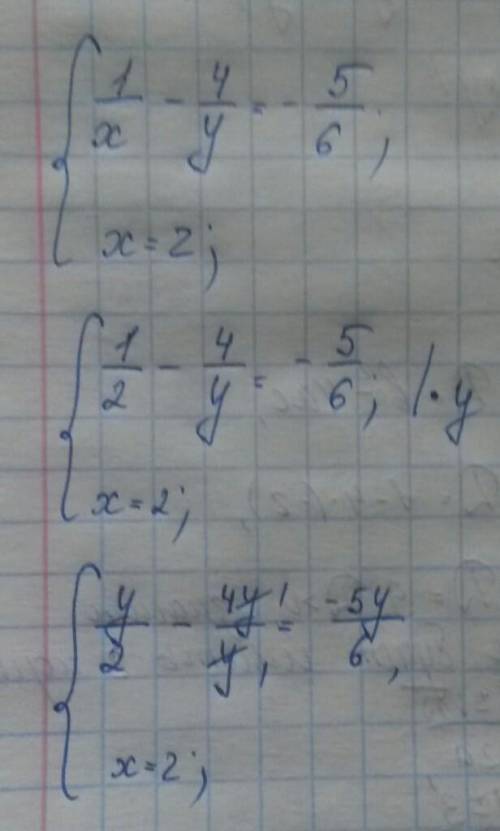 { 1/x - 4/y = - 5/6;
x = 2;
{ 1/2 - 4/y = - 5/6; | · y
x = 2;
{ y/2 - 4y/y = -5y/6,
x = 2;